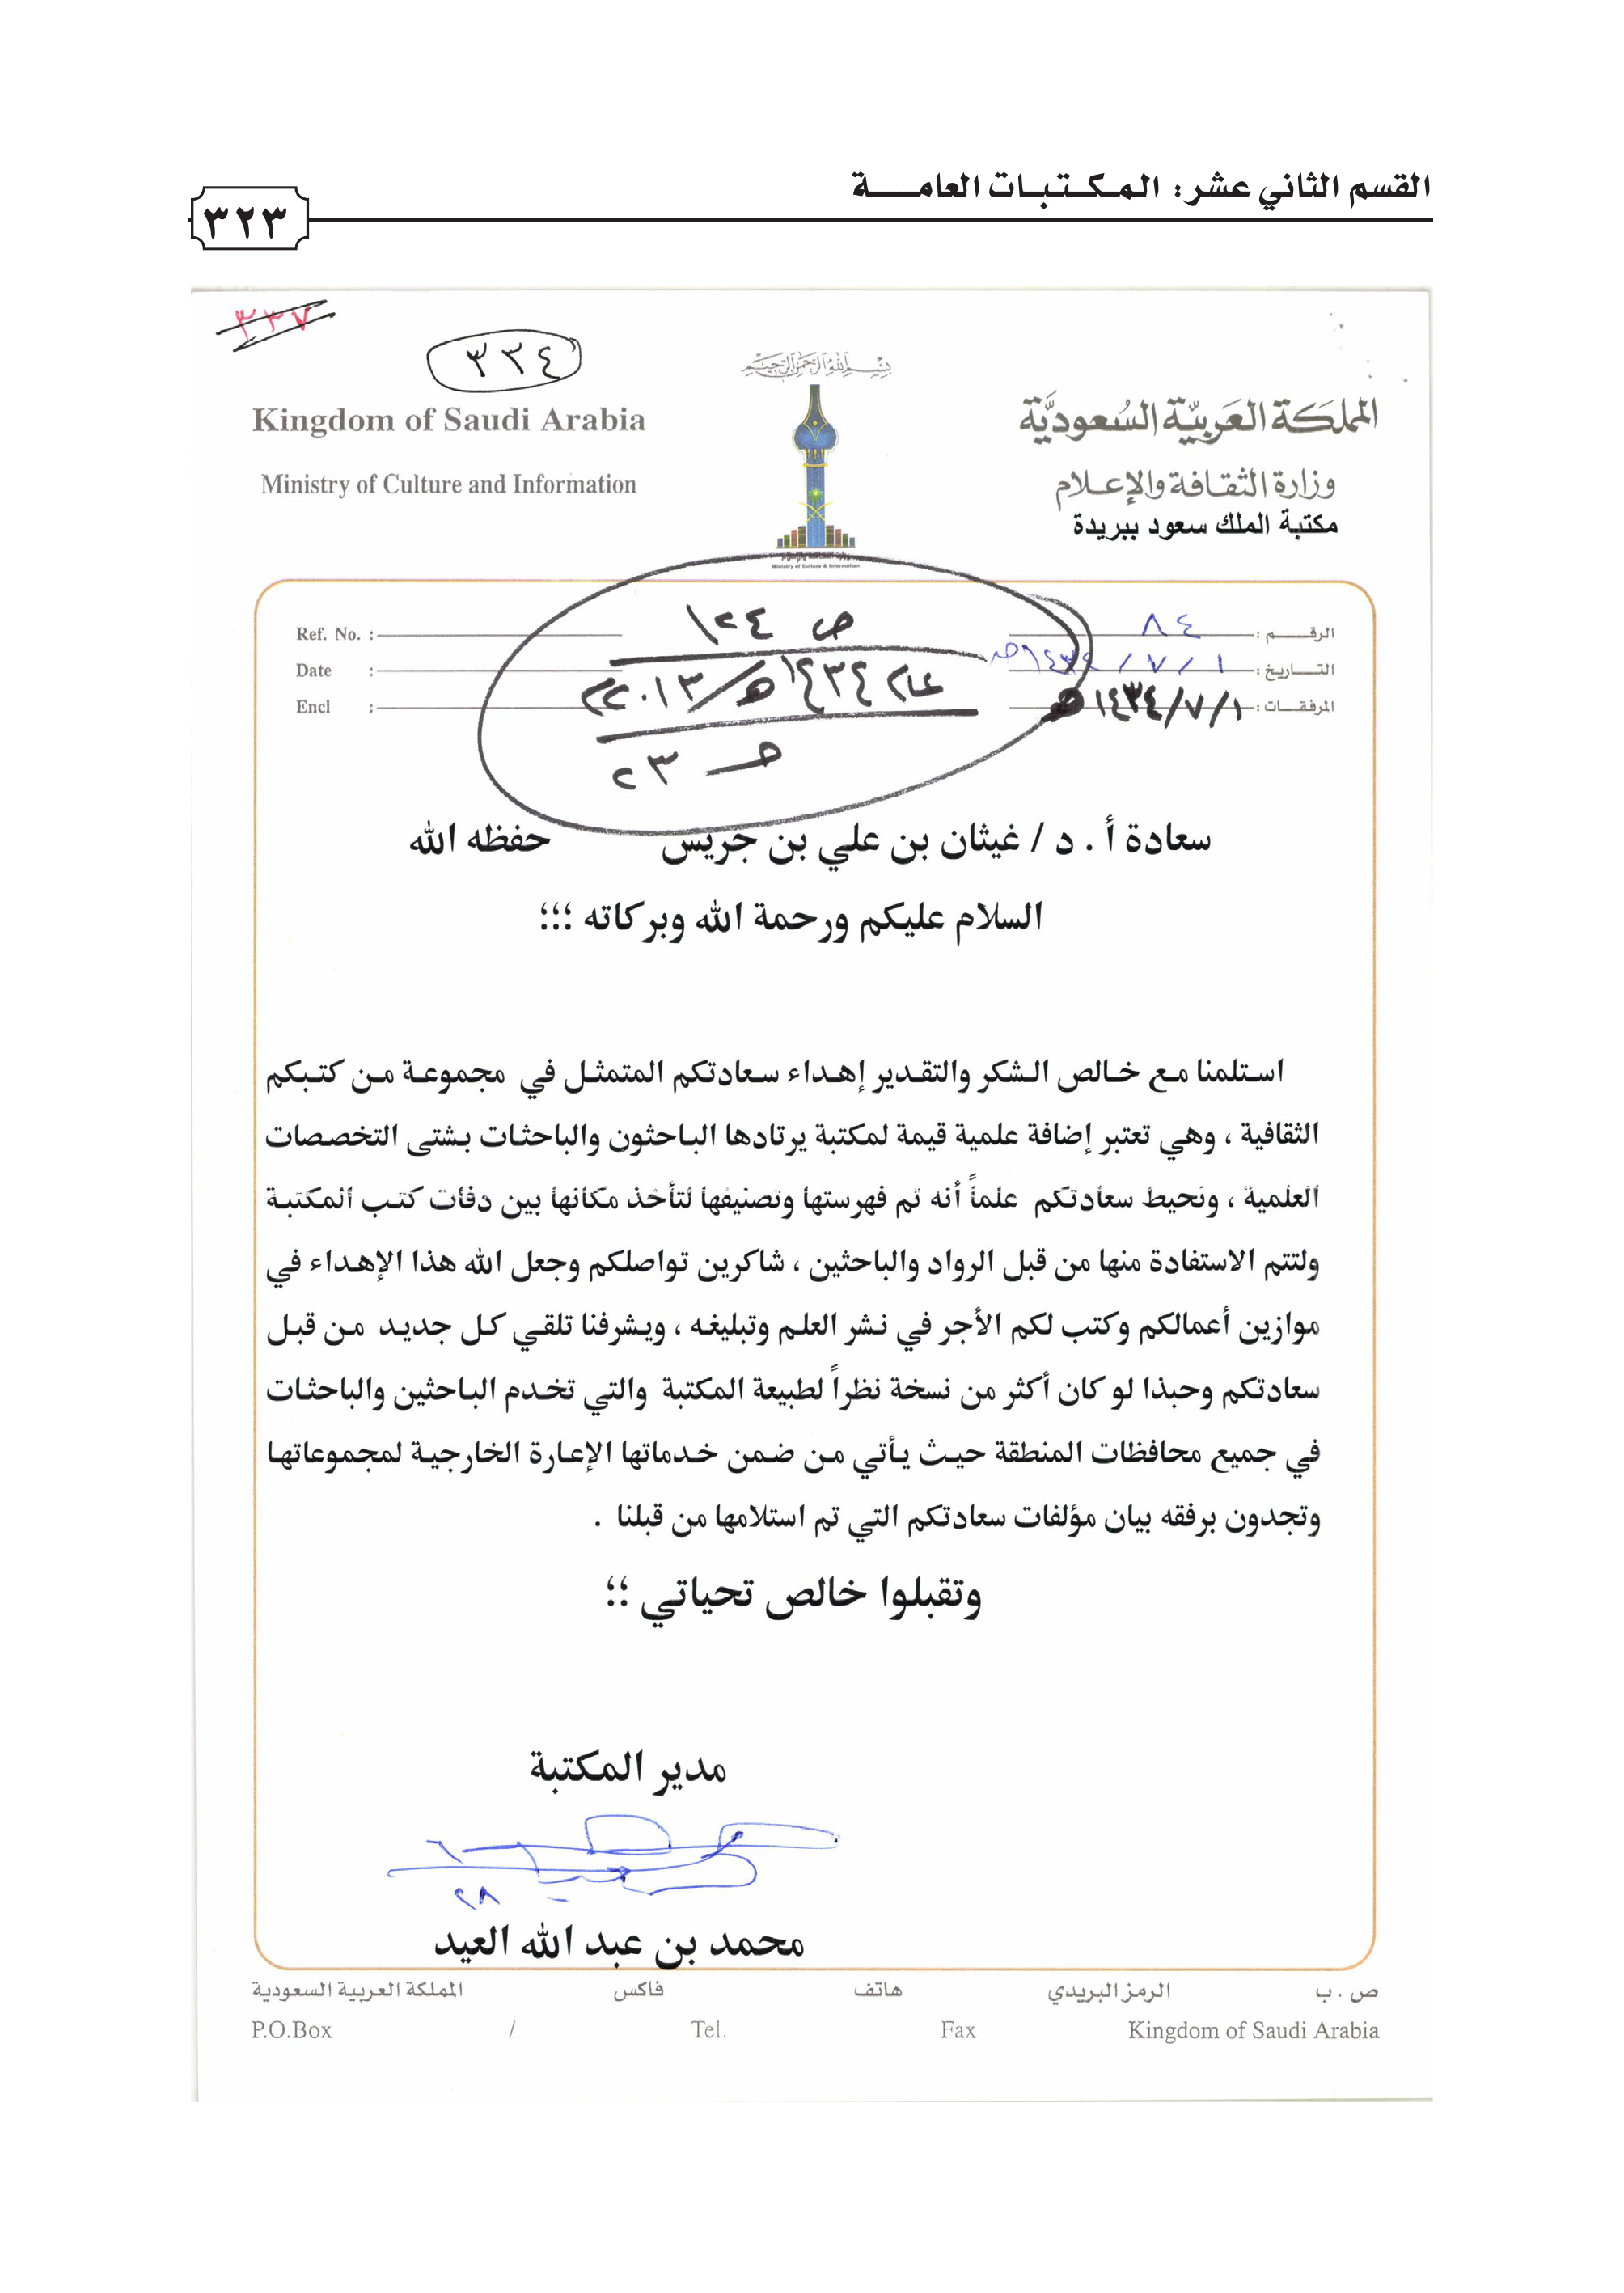 القسم الثاني عشر: المكتبات العامة
٣٢٣
٣٣٧
٣٣٤
بسم الله الرحمن الرحيم
المملكة العربية السعودية
Kingdom of Saudi Arabia
وزارة الثقافة والإعلام
Ministry of Culture and Information
مكتبة الملك سعود ببريدة
وزارة الثقافة والإعلام
Ministry of Culture & Information
الرقم : ٨٤
Ref. No. :
ص ١٢٤
التاريخ : ١ / ٧ / ١٤٣٤هـ
Date :
عام ١٤٣٤هـ/٢٠١٣م
المرفقات : ١/٧/١٤٣٤هـ
Encl :
حـ ٢٣
سعادة أ . د / غيثان بن علي بن جريس حفظه الله
السلام عليكم ورحمة الله وبركاته ؛؛؛
استلمنا مع خالص الشكر والتقدير إهداء سعادتكم المتمثل في مجموعة من كتبكم
الثقافية ، وهي تعتبر إضافة علمية قيمة لمكتبة يرتادها الباحثون والباحثات بشتى التخصصات
العلمية ، ونحيط سعادتكم علماً أنه تم فهرستها وتصنيفها لتأخذ مكانها بين دفات كتب المكتبة
ولتتم الاستفادة منها من قبل الرواد والباحثين ، شاكرين تواصلكم وجعل الله هذا الإهداء في
موازين أعمالكم وكتب لكم الأجر في نشر العلم وتبليغه ، ويشرفنا تلقي كل جديد من قبل
سعادتكم وحبذا لو كان أكثر من نسخة نظراً لطبيعة المكتبة والتي تخدم الباحثين والباحثات
في جميع محافظات المنطقة حيث يأتي من ضمن خدماتها الإعارة الخارجية لمجموعاتها
وتجدون برفقه بيان مؤلفات سعادتكم التي تم استلامها من قبلنا .
وتقبلوا خالص تحياتي ؛؛
مدير المكتبة
محمد بن عبد الله العيد
ص . ب الرمز البريدي هاتف فاكس المملكة العربية السعودية
P.O.Box / Tel. Fax Kingdom of Saudi Arabia